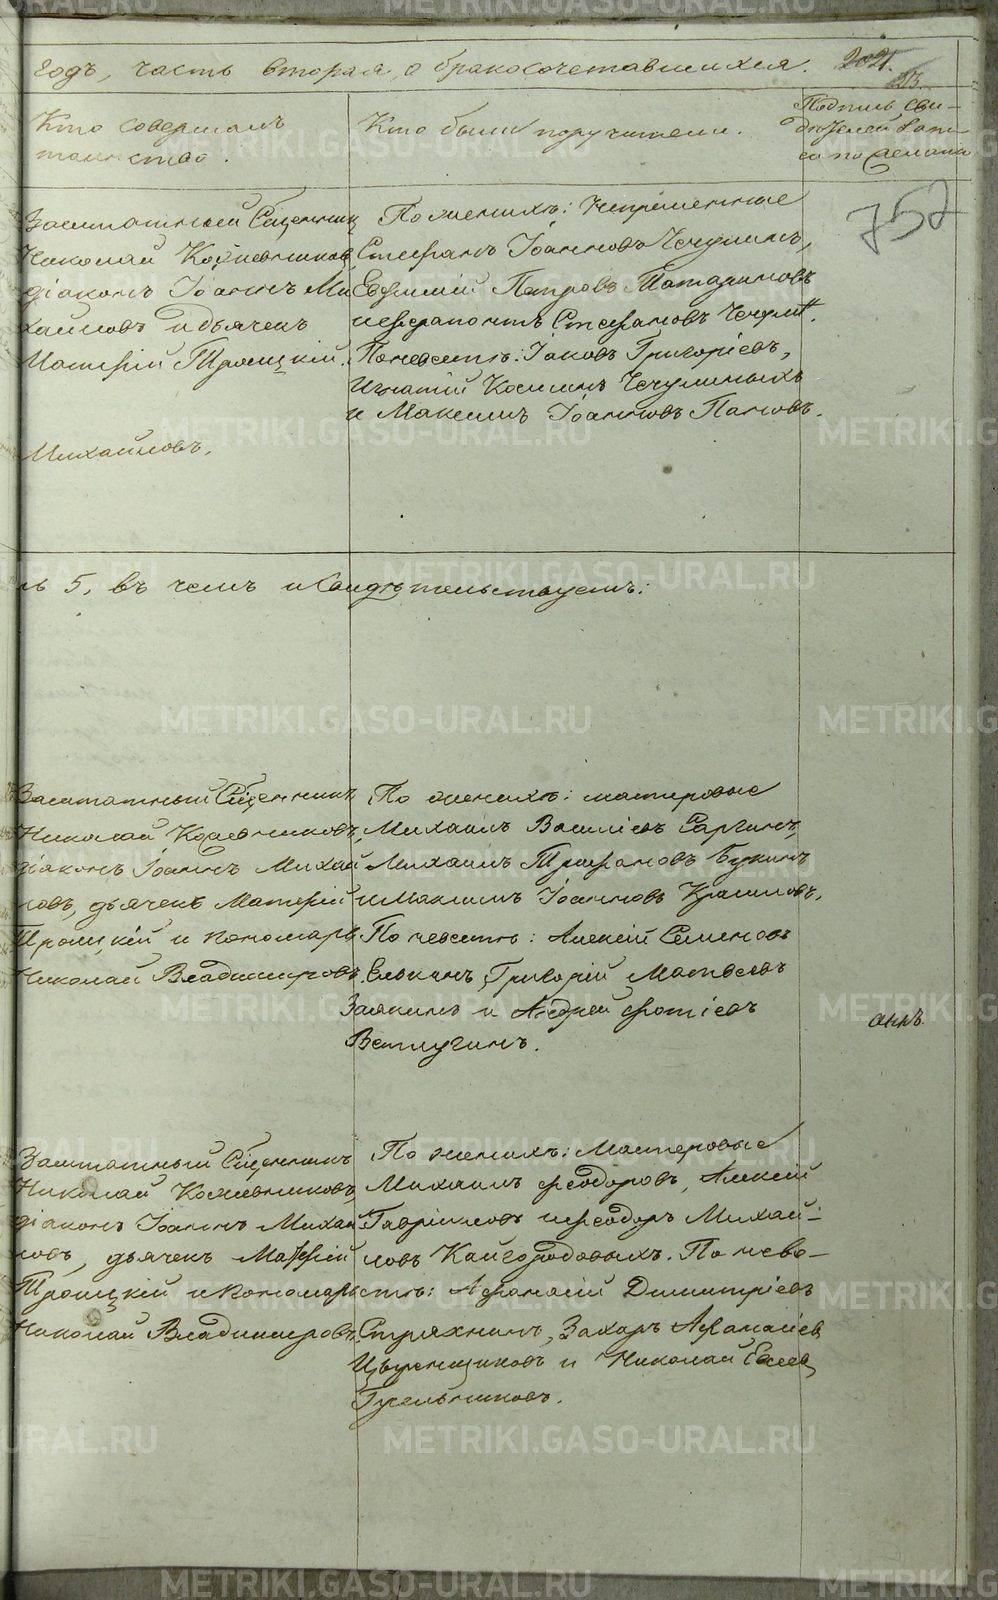 годъ, часть вторая, о бракосочетавшихся.
Кто совершалъ
таинство.
Кто были поручители.
Подпись сви-
дѣтелей запи-
си по желанію
752
Заштатный Священникъ
Николай Кожевниковъ,
діаконъ Іоаннъ Ми
хайловъ и дьячекъ
Матѳій Троицкій.
Михайловъ.
По женихѣ: Непремѣнные
Стефанъ Іоанновъ Чечулинъ,
Евфимій Петровъ Шатагиновъ
и Ферапонтъ Стефановъ Чечул.
По невѣстѣ: Іаковъ Григоріевъ,
Игнатій Козминъ Чечулиныхъ
и Максимъ Іоанновъ Пановъ.
ль 5, въ чемъ и свидѣтельствуемъ:
Заштатный Священникъ
Николай Кожевниковъ,
діаконъ Іоаннъ Михай
ловъ, дьячекъ Матѳій
Троицкій и пономарь
Николай Владимировъ.
По женихѣ: мастеровые
Михаилъ Василіевъ Саргинъ,
Михаилъ Трифановъ Букинъ
и Максимъ Іоанновъ Крашновъ.
По невѣстѣ: Алексій Семеновъ
Елькинъ, Григорій Матвѣевъ
Заякинъ и Андрей Фотіевъ
Ветлугинъ.
Заштатный Священникъ
Николай Кожевниковъ
діаконъ Іоаннъ Михай
ловъ, дьячекъ Матѳій
Троицкій и пономарь
Николай Владимировъ.
По женихѣ: Мастеровые
Михаилъ Феодоровъ, Алексій
Гавріиловъ и Феодоръ Михай-
ловъ Кайгородовыхъ. По невѣ-
стѣ: Афанасій Димитріевъ
Стряхнинъ, Захаръ Афанасіев
Цыренщиковъ и Николай Евсеев
Гусельниковъ.
METRIKI.GASO-URAL.RU